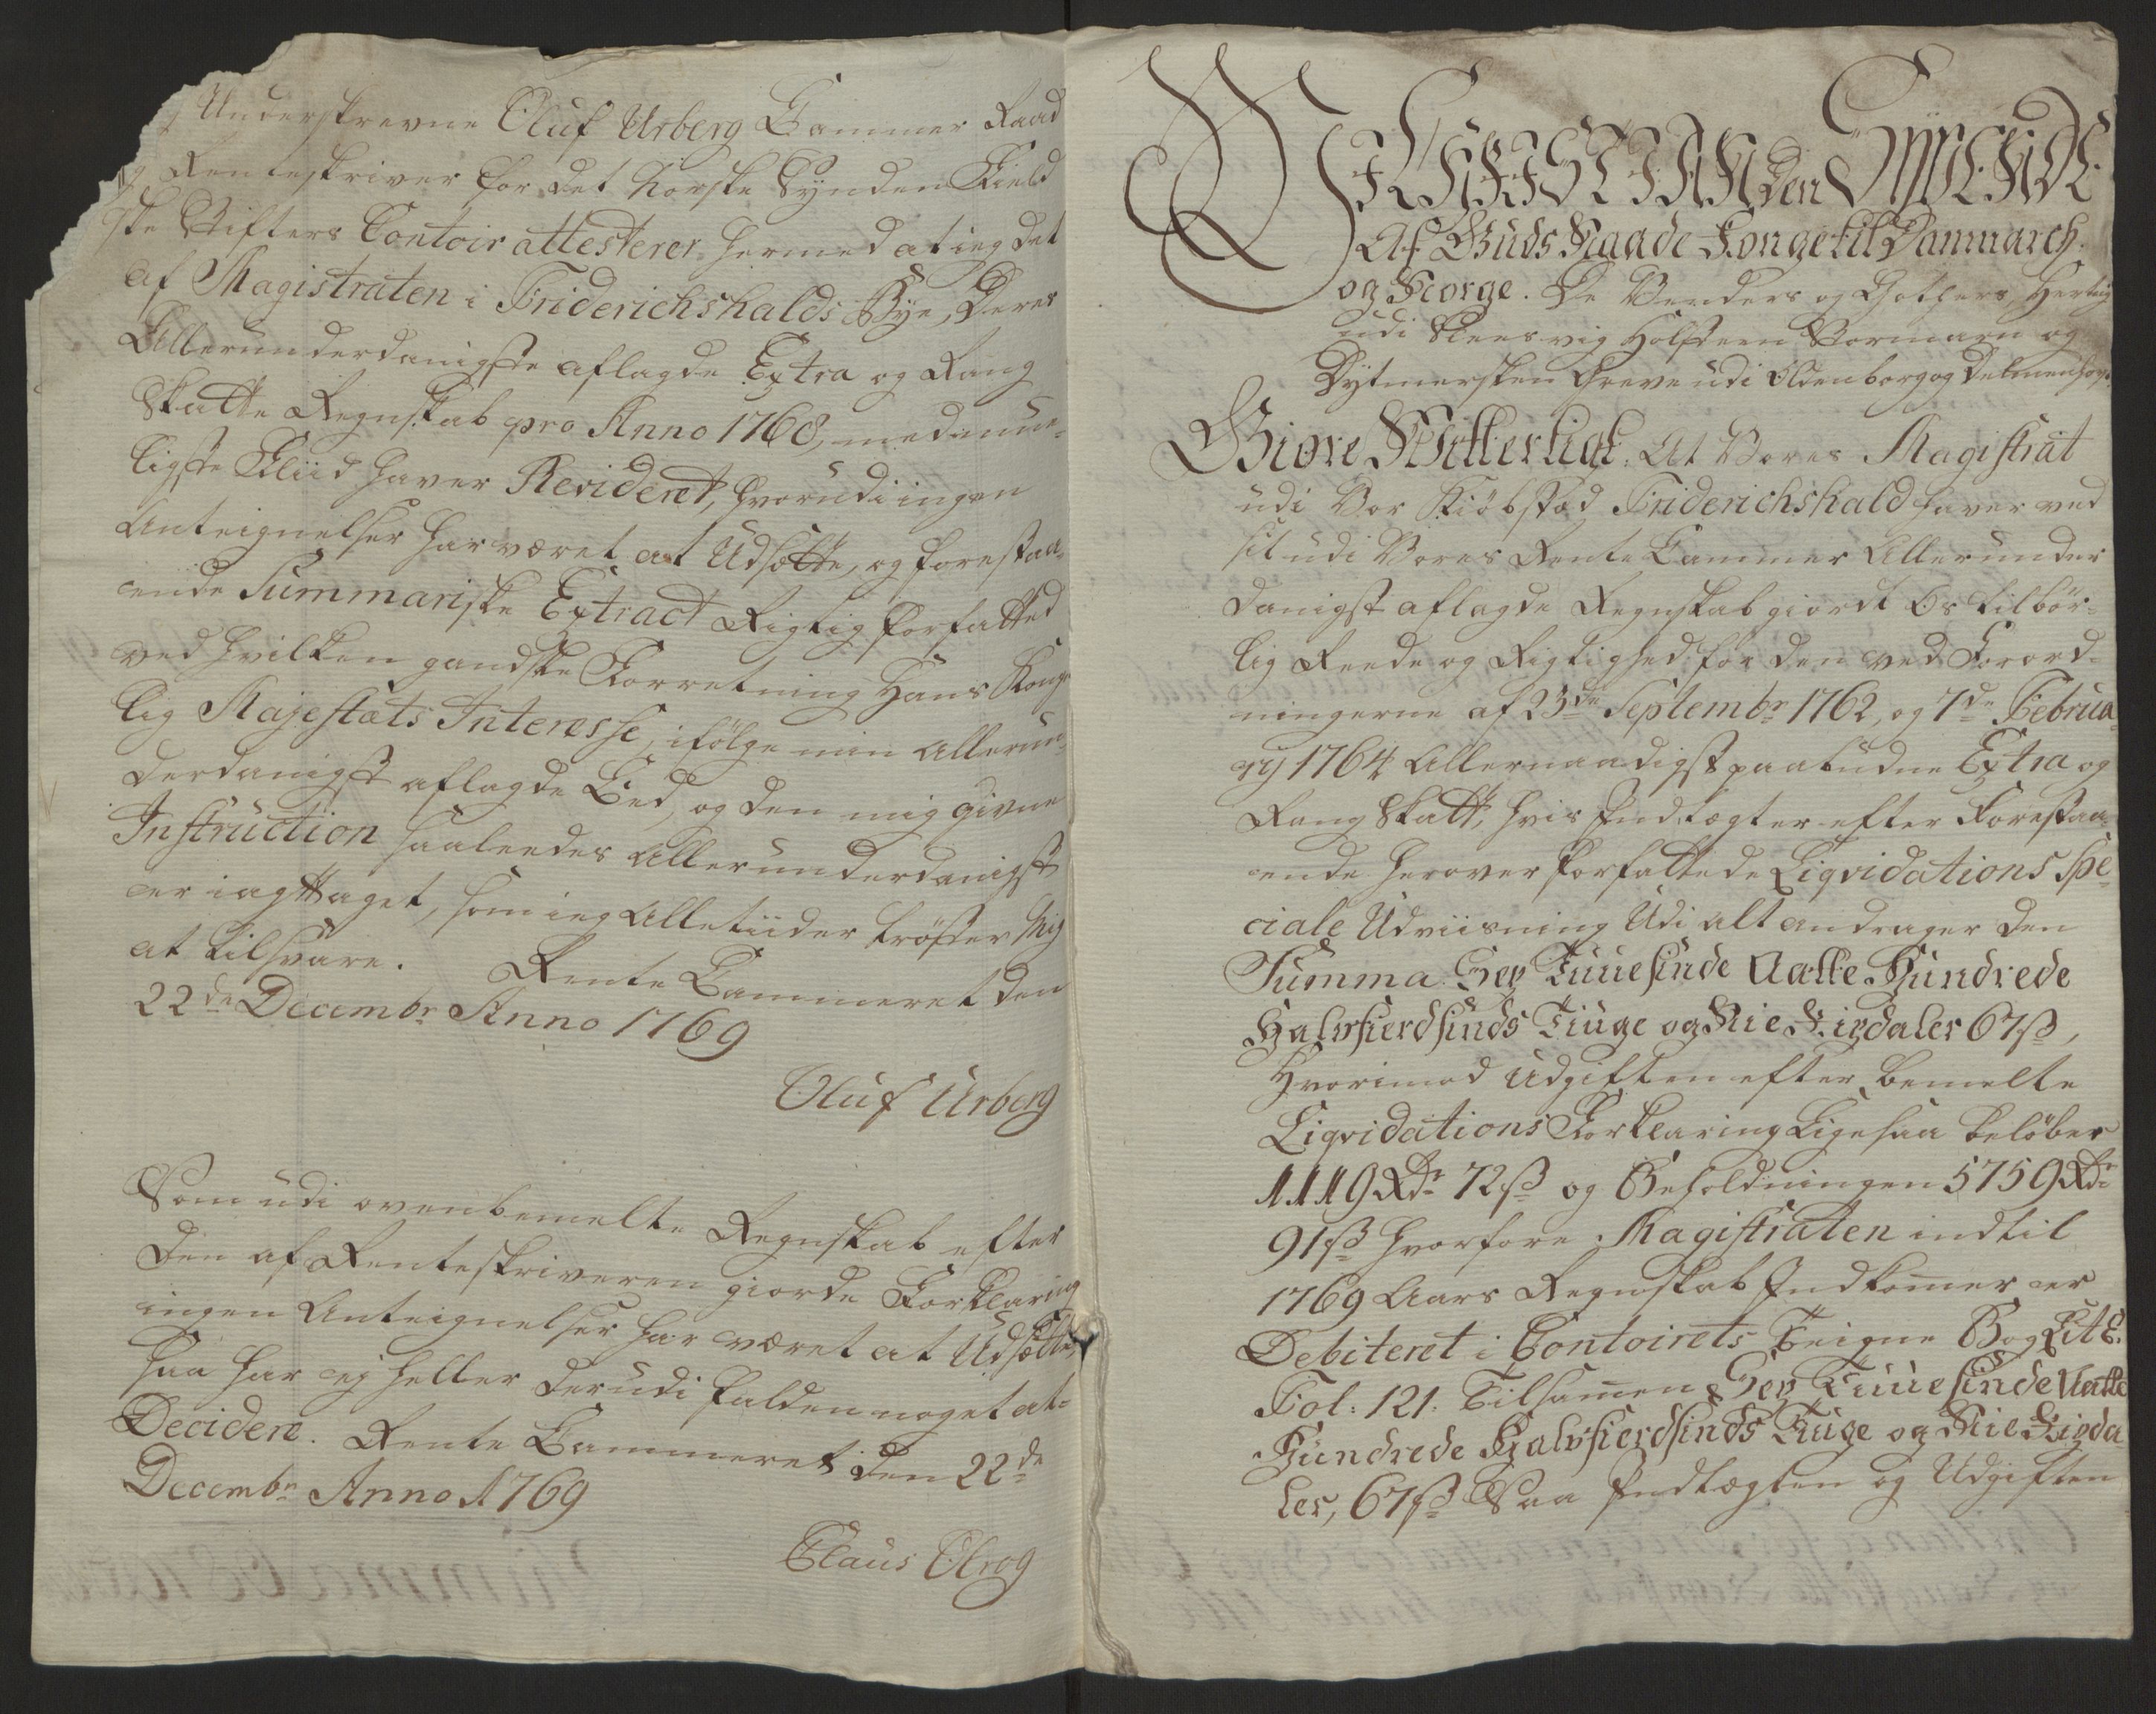 Underskrevne Oluf Urberg Cammer Raad
og Renteskriver for det Norske Synden Field
ske Stifters Contoir attesterer hermed at ieg det
af Magistraten i Friderichshalds Bye, Deres
Allerunderdanigste aflagde Extra og Rang
Skatte Regnskab pro Anno 1768, med mue-
ligste Fliid haver Revideret, hvorudi ingen
Antegnelser har været at Udsætte, og forestaa-
ende Summariske Extract Rigtig forfatted
ved hvilken gandske Forretning Hans Konge
lig Majestæts Interesse, ifølge min Allerun-
derdanigst aflagde Eed, og den mig givne
Instruction saaleedes Allerunderdanigst
er iagttaget, som ieg Alletiider trøster Mig
at tilsvare. Rente Cammeret den
22de Decembr Anno 1769
Oluf Urberg
Som udi ovenbemelte Regnskab efter
den af Renteskriveren giorde Forklaring
ingen Antegnelser har været at Udsætte,
saa har ej heller derudi falden noget at
Decidere. Rente Cammeret den 22de
Decembr Anno 1769
Claus Olrog
CHRISTIAN den SYVENDE
Af Guds Naade Konge til Danmarch
og Norge. De Venders og Gothers, Hertug
udi Sleesvig Holsteen Stormarn og
Dytmersken Greve udi Oldenborg og Delmenhor.
Giøre Witterligt: At Vores Magistrat
udi Vor Kiøbstæd Friderichshald haver ved
sit udi Vores Rente Cammer Allerunder
danigst aflagde Regnskab giordt Os tilbør-
lig Reede og Rigtighed for den ved Forord-
ningerne af 23de Septembr 1762, og 7de Februa
rij 1764 Allernaadigst paabudne Extra og
Rang Skatt, hvis Indtægter efter Forestaa-
ende herover forfattede Liqvidations Spe-
ciale Udviisning Udi alt andrager den
Summa Sex Tuuesinde Aatte Hundrede
Halvfierdsinds Tiuge og Nie Rixdaler 67 ß,
Hvorimod Udgiften efter bemelte
Liqvidations Forklaring Ligesaa beløber
1119 Rdr 72 ß og Beholdningen 5759 Rdr
91 ß hvorfore Magistraten indtil
1769 Aars Regnskab Indkommer er
Debiteret i Contoirets Teigne Bog Lit E.
Fol: 121. Tilsamen Sex Tuuesinde Aatte
Hundrede Halvfierdsinds Tiuge og Nie Rixda
ler, 67 ß Saa Indtægten og Udgiften